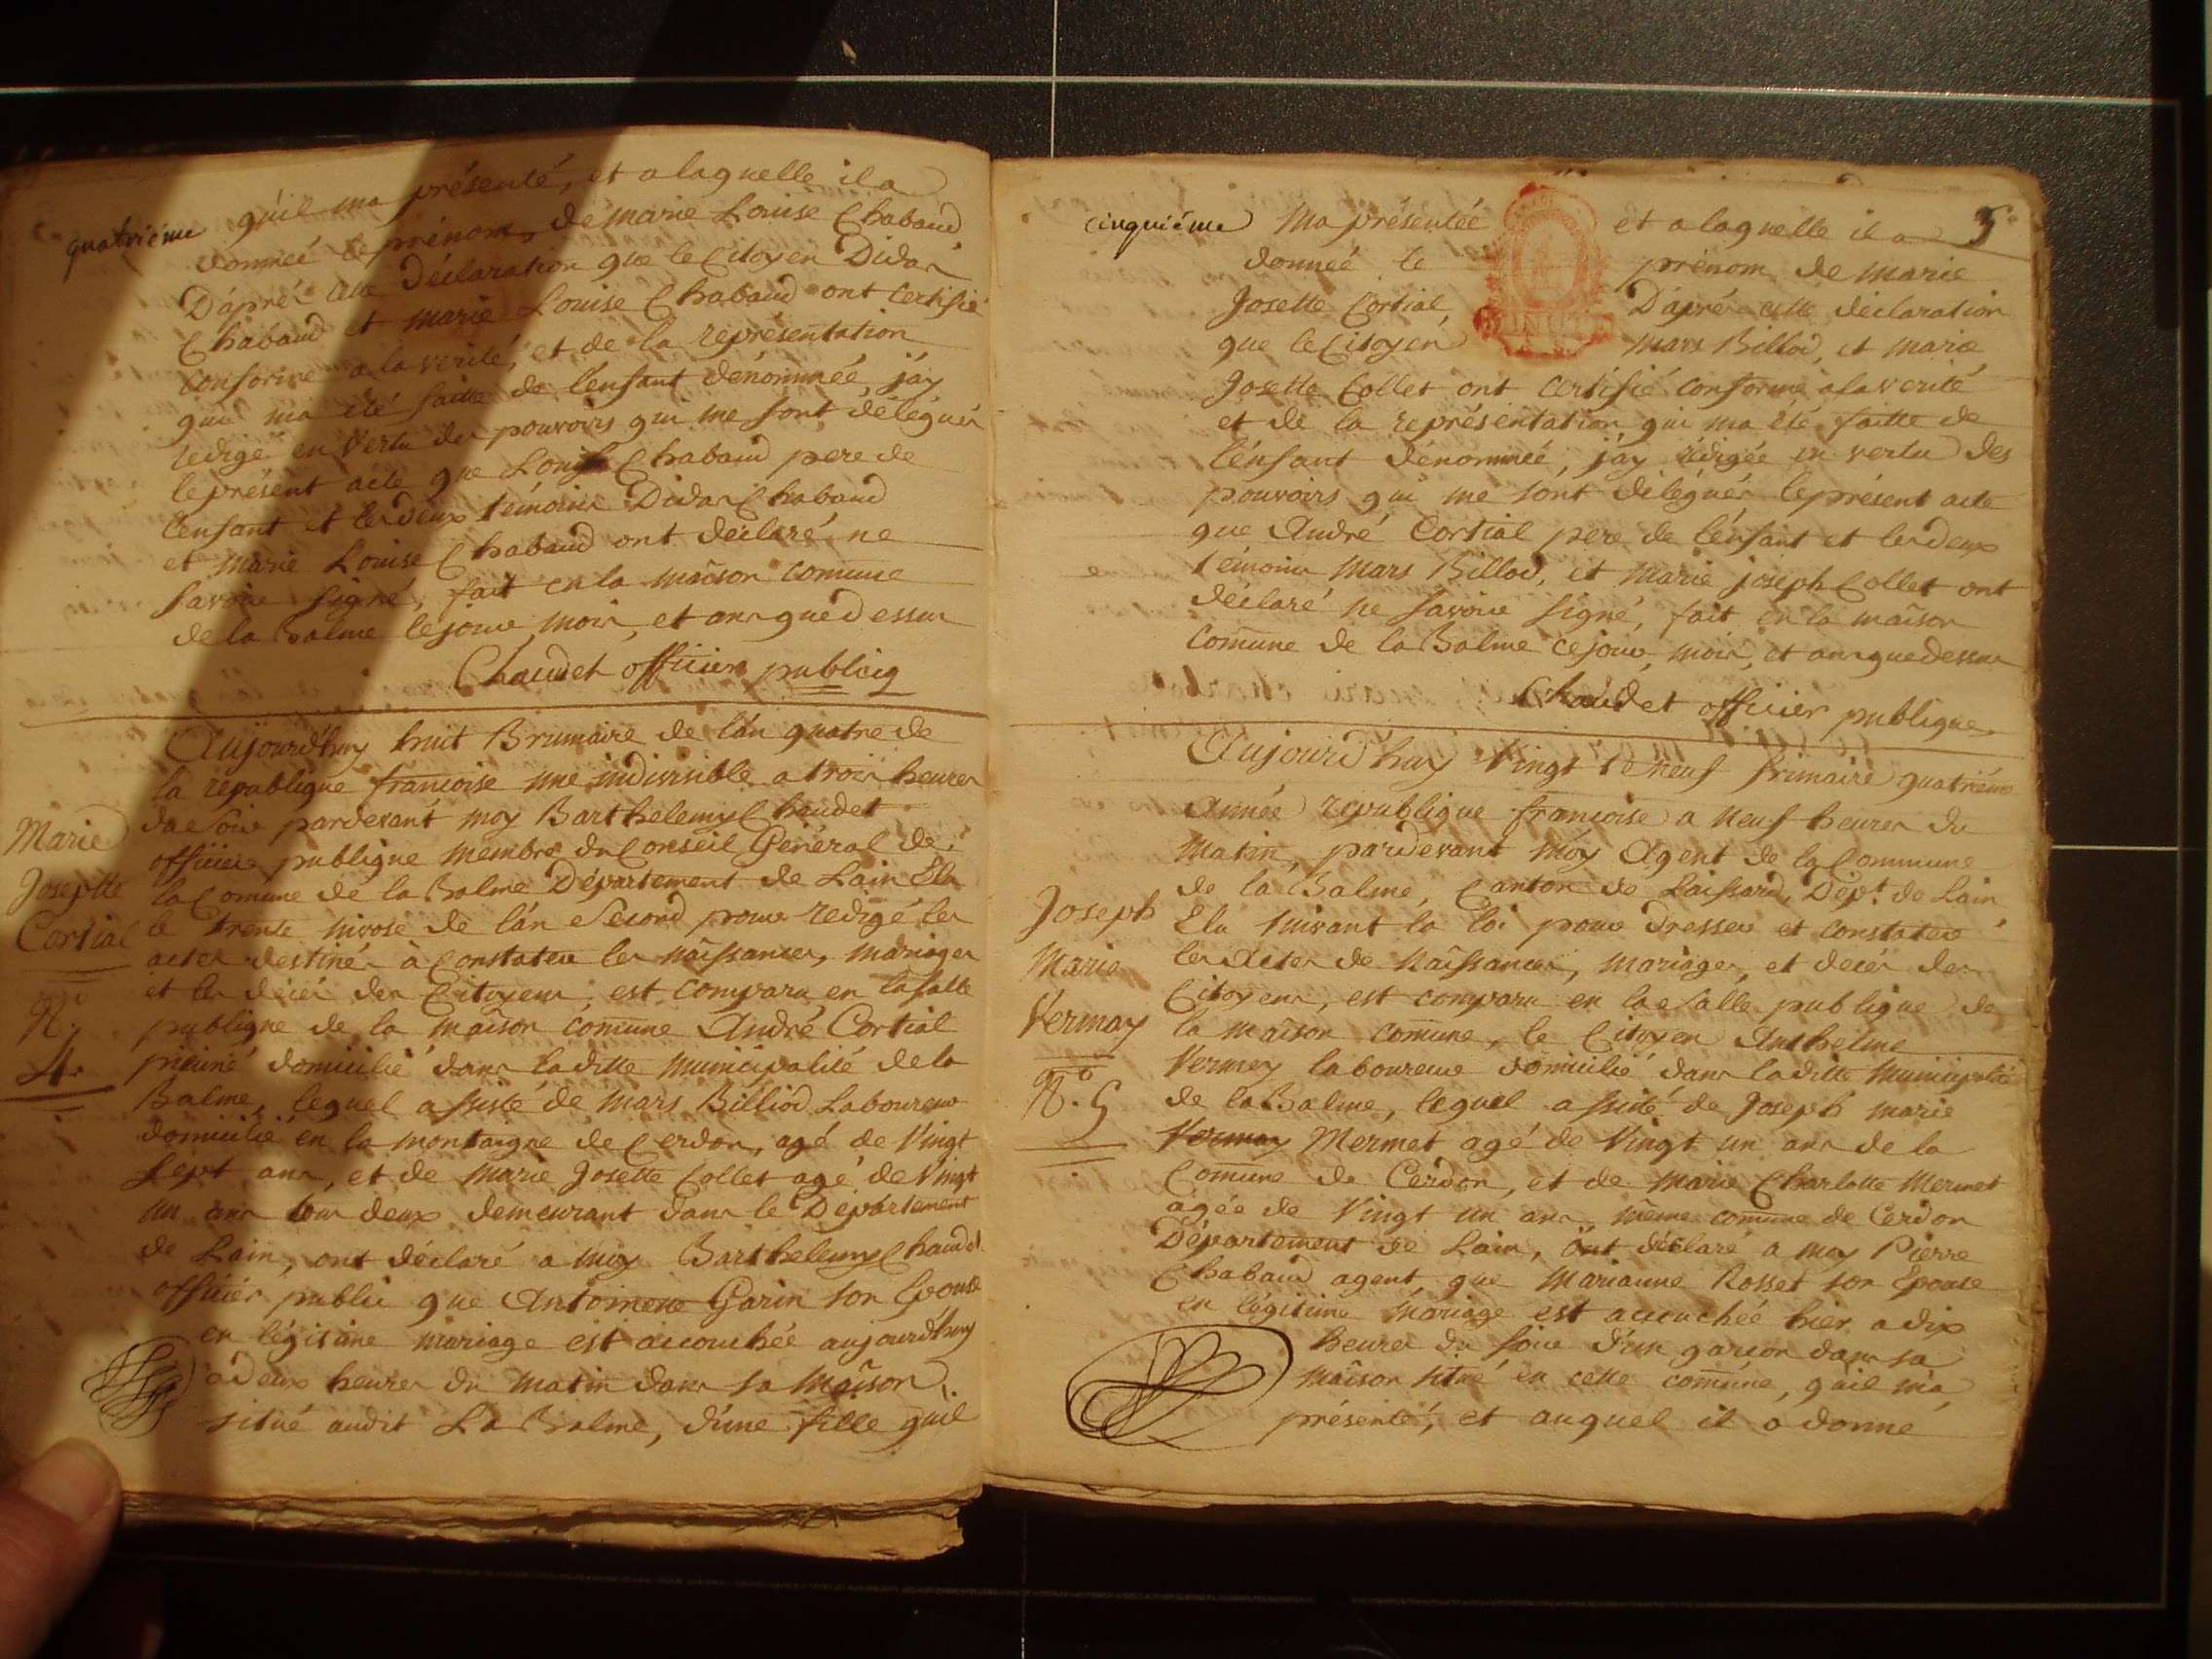 quatrième
qu'il ma présenté, et a laquelle il a
donnée le prénom, de marie Louise Chabaud
D'aprés cette déclaration que le Citoyen Didas
Chabaud et marie Louise Chabaud ont certifié
conforme a la verité, et de la représentation
qui ma été faitte de l'énfant dénommée, j'ay
redigé en vertu des pouvoirs qui me sont déléguér
le présent acte que Louis Chabaud pere de
l'enfant et les deux témoins Didas Chabaud
et marie Louise Chabaud ont déclaré ne
savoir signé, fait en la maison comune
de la Balme le jour, mois, et ans que dessus
Chaudet officier publicq
Aujourd'huy huit Brumaire de l'an quatre de
la république françoise une indivisible a trois heures
du soir pardevant moy Barthelemy Chaudet
officier publique membre du Conseil Général de
la Comune de la Balme Département de Lain Elu
le trente nivose de l'an second pour redigé les
actes destinés à Constater les naissances, mariages
et les décés des Citoyens, est comparu en la salle
publique de la maison comune André Cortial
domicilié dans laditte municipalité de la
Balme, lequel assisté de mars Billiod Laboureur
domicilié en la montaigne de Cerdon, agé de vingt
sept ans, et de marie Josette Collet agé de vingt
un ans tous deux demeurant dans le Département
de Lain, ont déclaré a moy Barthelemy Chaudet
officier public que Antoinette Garin son Epouse
en légitime mariage est accouchée aujourd'huy
a deux heures du matin dans sa maison
situé audit La Balme, d'une fille qu'il
Marie
Josephte
Cortial
N.o
4.
cinquiéme
5.
Ma présentée et a laquelle il a
donnée le prénom de marie
Josette Cortial, D'aprés cette déclaration
que le Citoyen mars Billod, et marie
Josette Collet ont certifié conforme a la verité
et de la représentation qui ma été faitte de
l'énfant dénommée, j'ay rédigée en vertu des
pouvoirs qui me sont déléguér le présent acte
que André Cortial pere de l'énfant et les deux
témoins Mars Billod, et Marie joseph Collet ont
déclaré ne savoir signé, fait en la maison
comune de la Balme ce jour, mois, et ans que dessus
Chaudet officier publique
Aujourd'huy vingt te neuf frimaire quatriéme
année république françoise a neuf heures du
matin, pardevant moy Agent de la Commune
de la Balme, Canton de Laissard, Dept. de Lain
Elu suivant la loi pour dresser et constater
les actes de naissances, mariages, et décés des
Citoyens, est comparu en la salle publique de
la maison comune, le Citoyen Anthelme
Vermey laboureur domicilié dans laditte municipalité
de la Balme, lequel assisté de Joseph marie
Vermay Mermet agé de vingt un ans de la
Comune de Cerdon, et de marie Charlotte Mermet
agée de vingt un ans, même comune de Cerdon
Département de Lain, ont déclaré a moy Pierre
Chabaud agent que Marianne Rosset son épouse
en légitime mariage est accouchée hier a dix
heures du soir d'un garçon dans sa
maison situé en cette comune, qu'il m'a
présenté, et auquel il a donné
Joseph
Marie
Vermay
N.o 5